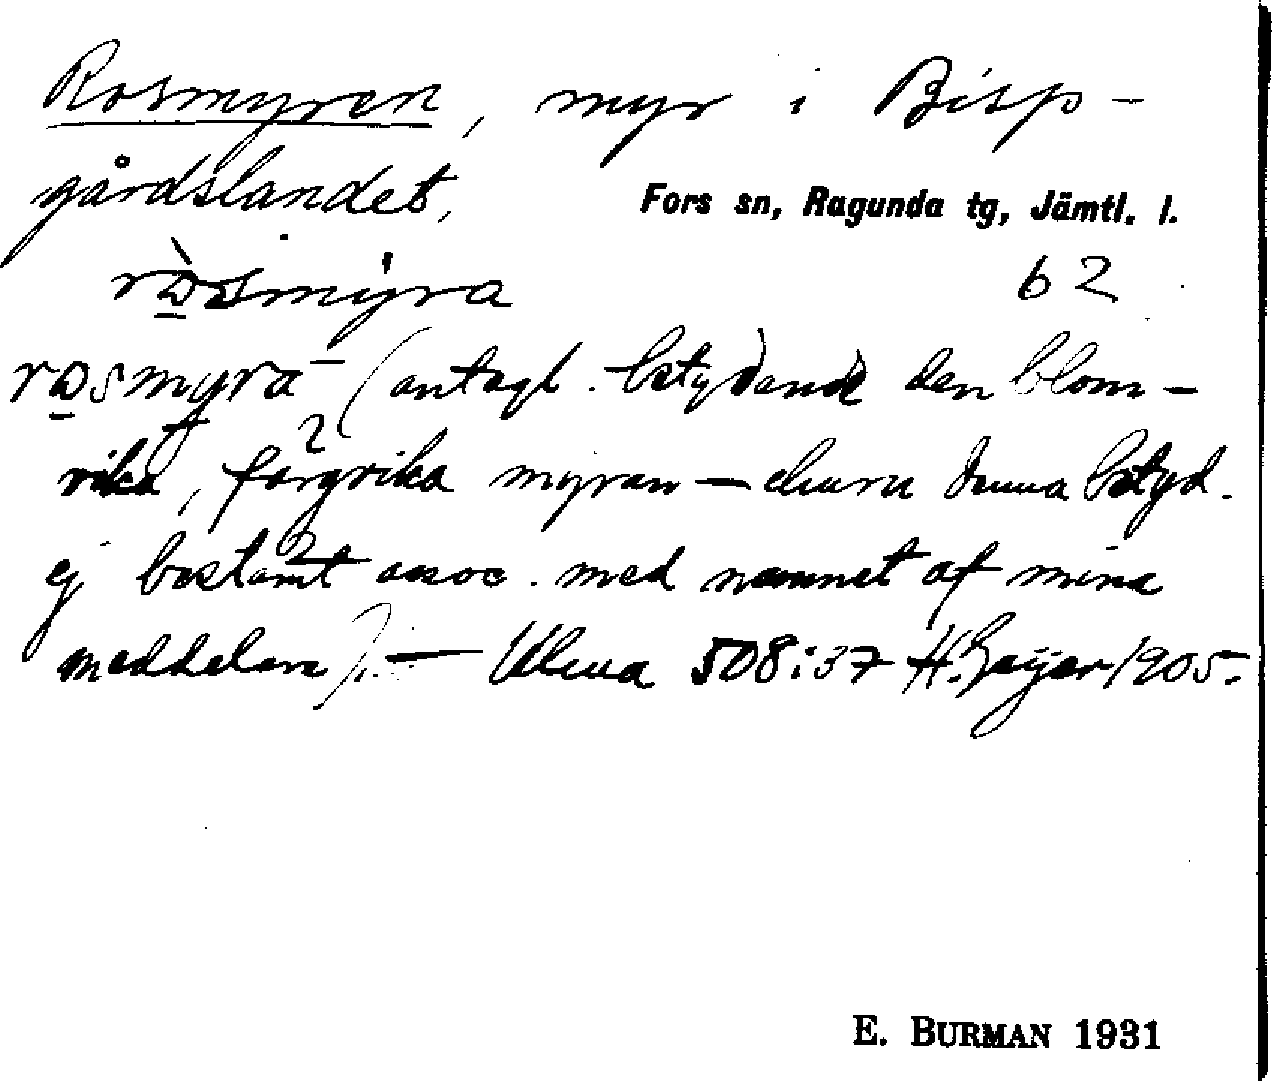 Rosmyren, myr i Bisp-
gårdslandet,
Fors sn, Ragunda tg, Jämtl. l.
ròsmýra 62
rosmyra (antagl. betydande den blom-
rika, färgrika myran — ehuru denna betyd.
ej bestämt assoc. med namnet af mina
meddelare). — Ulma 508:37 H. Geijer 1905.
E. BURMAN 1931